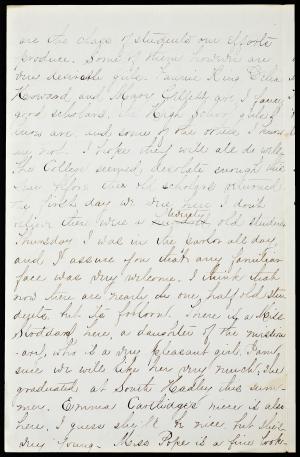 are the class of students our efforts
produce. Some of them however are
very desirable girls. Fannie Hens Delia
Howard, and Mary Gillett are, I fancy
good scholars. The High School girls I
know are, and some of the others I know
are not. I hope they will all do well.
The College seemed desolate enough this
year before the old scholars returned.
The first day we were here I don't
believe there were a seventy old students
Thursday I was in the parlor all day,
and I assure you that any familiar
face was very welcome. I think that
now there are nearly as one half old stu-
dents, but it's forlorn. There is a Miss
Stoddard here, a daughter of the mission-
ary, who is a very pleasant girl. I am
sure we will like her very much, she
graduated at South Hadley this sum-
mer. Emma Cartlidge's niece is also
here. I guess she'll be nice, but she's
very young. Miss Pope is a fine look-